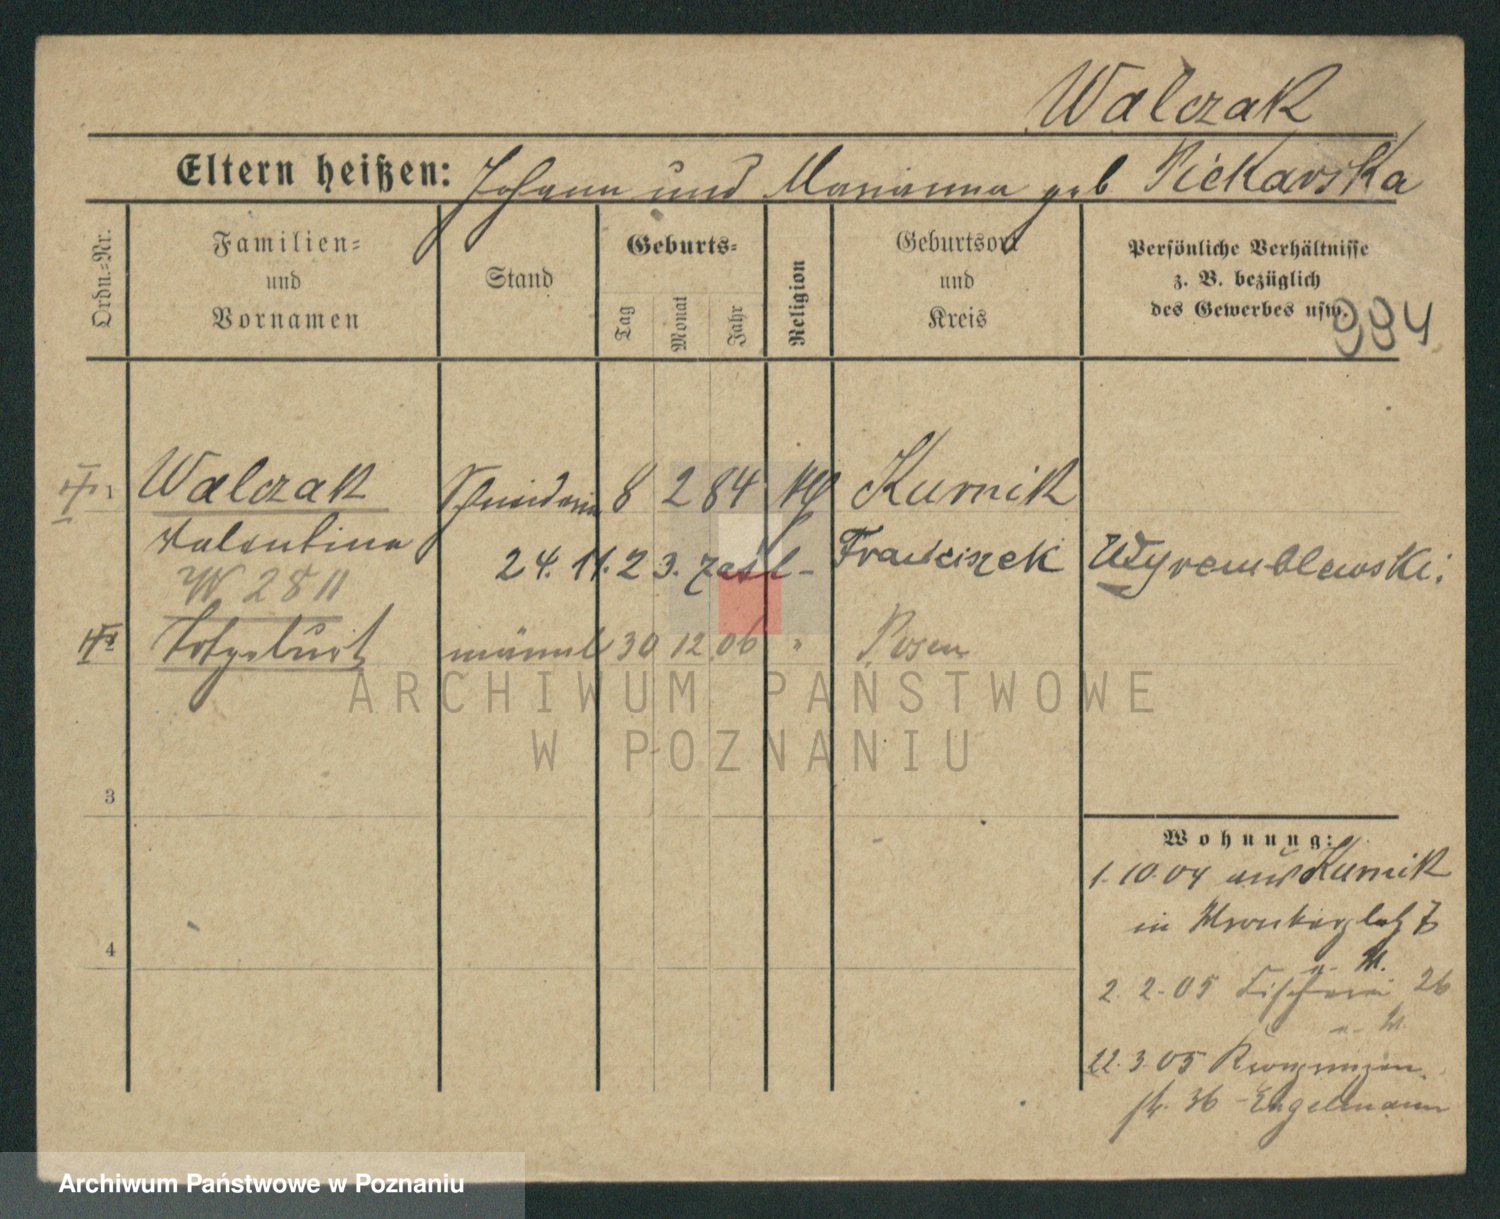 Walczak
Eltern heißen: Johann und Marianna geb Piekarska
Ordn.=Nr.
Familien=
und
Vornamen
Stand
Geburts=
Tag
Monat
Jahr
Religion
Geburtsort
und
Kreis
Persönliche Verhältnisse
z. B. bezüglich
des Gewerbes usw.
994
1 Walczak Schneiderin 8 2 84 Kurnik
Valentina
24. 11. 23. zaśl - Franciszek Wyremblewski.
W 2811
Totgeburt männl 30 12 06 " Posen
ARCHIWUM PAŃSTWOWE
W POZNANIU
3
4
Wohnung:
1. 10. 04 aus Kurnik
in Wronkerplatz 7
2. 2. 05 Fischerei 26
22. 3. 05
str. 36 - Engelmann
Archiwum Państwowe w Poznaniu